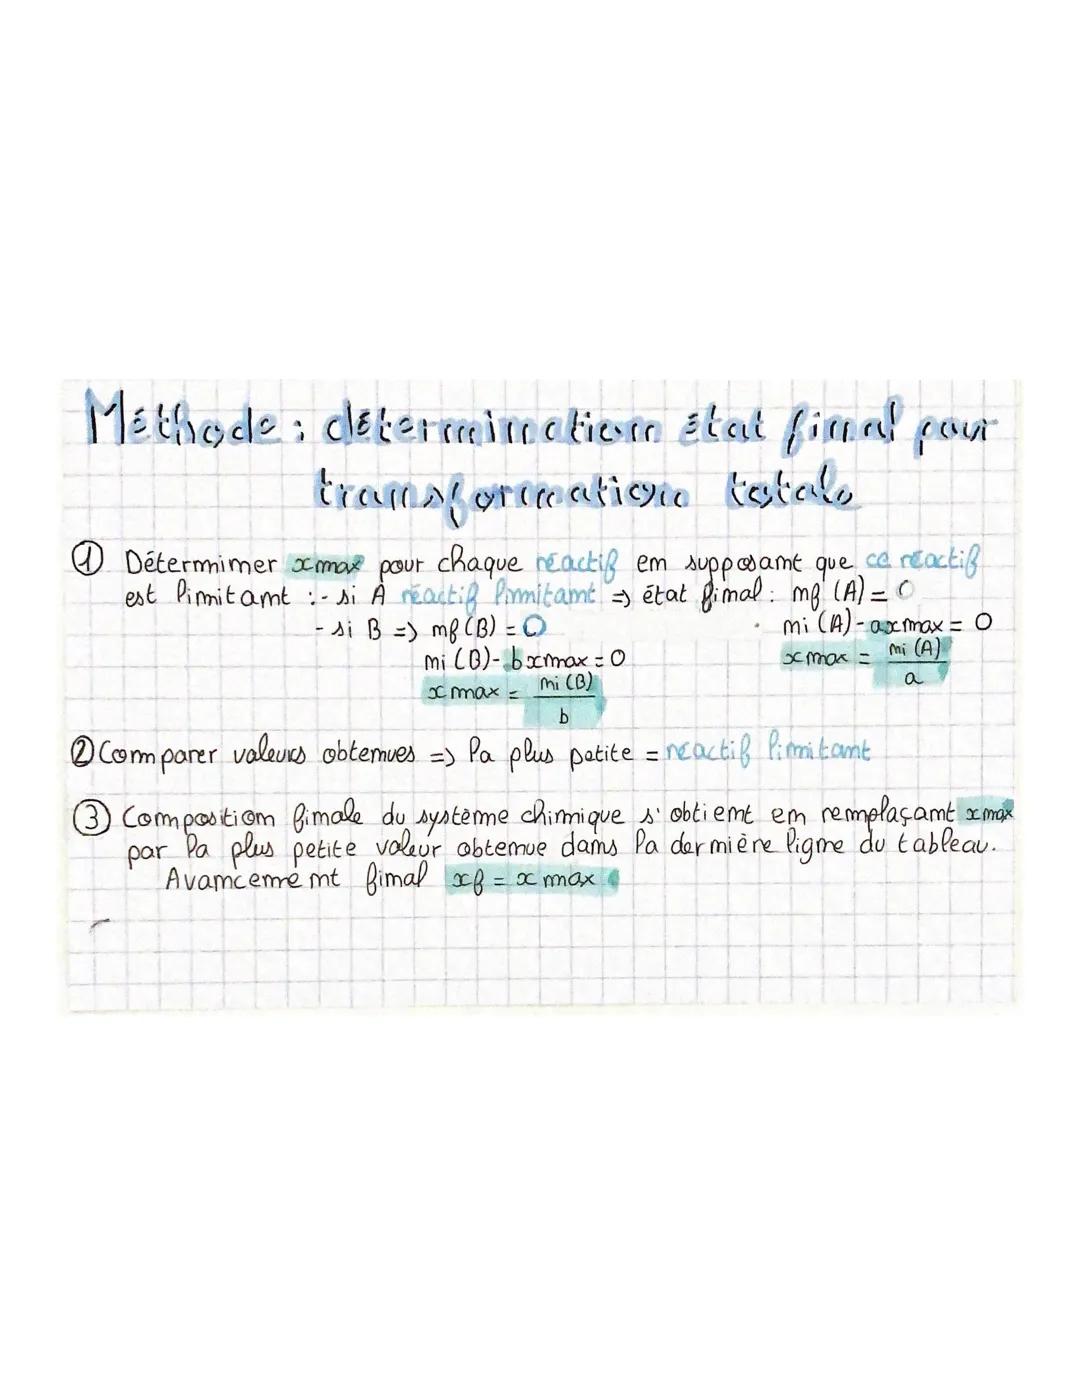 Méthode : détermination état final pour
transformation totale
① Déterminer xmax pour chaque réactif en supposant que ce réactif
est limitant :- si A réactif limitant => état final : nf (A) = 0
- si B => nf (B) = 0
ni (A) - axmax = 0
ni (B) - bxmax = 0
xmax = ni (A) / a
xmax = ni (B) / b
② Comparer valeurs obtenues => la plus petite = réactif limitant
③ Composition finale du système chimique s'obtient en remplaçant xmax
par la plus petite valeur obtenue dans la dernière ligne du tableau.
Avancement final xf = xmax